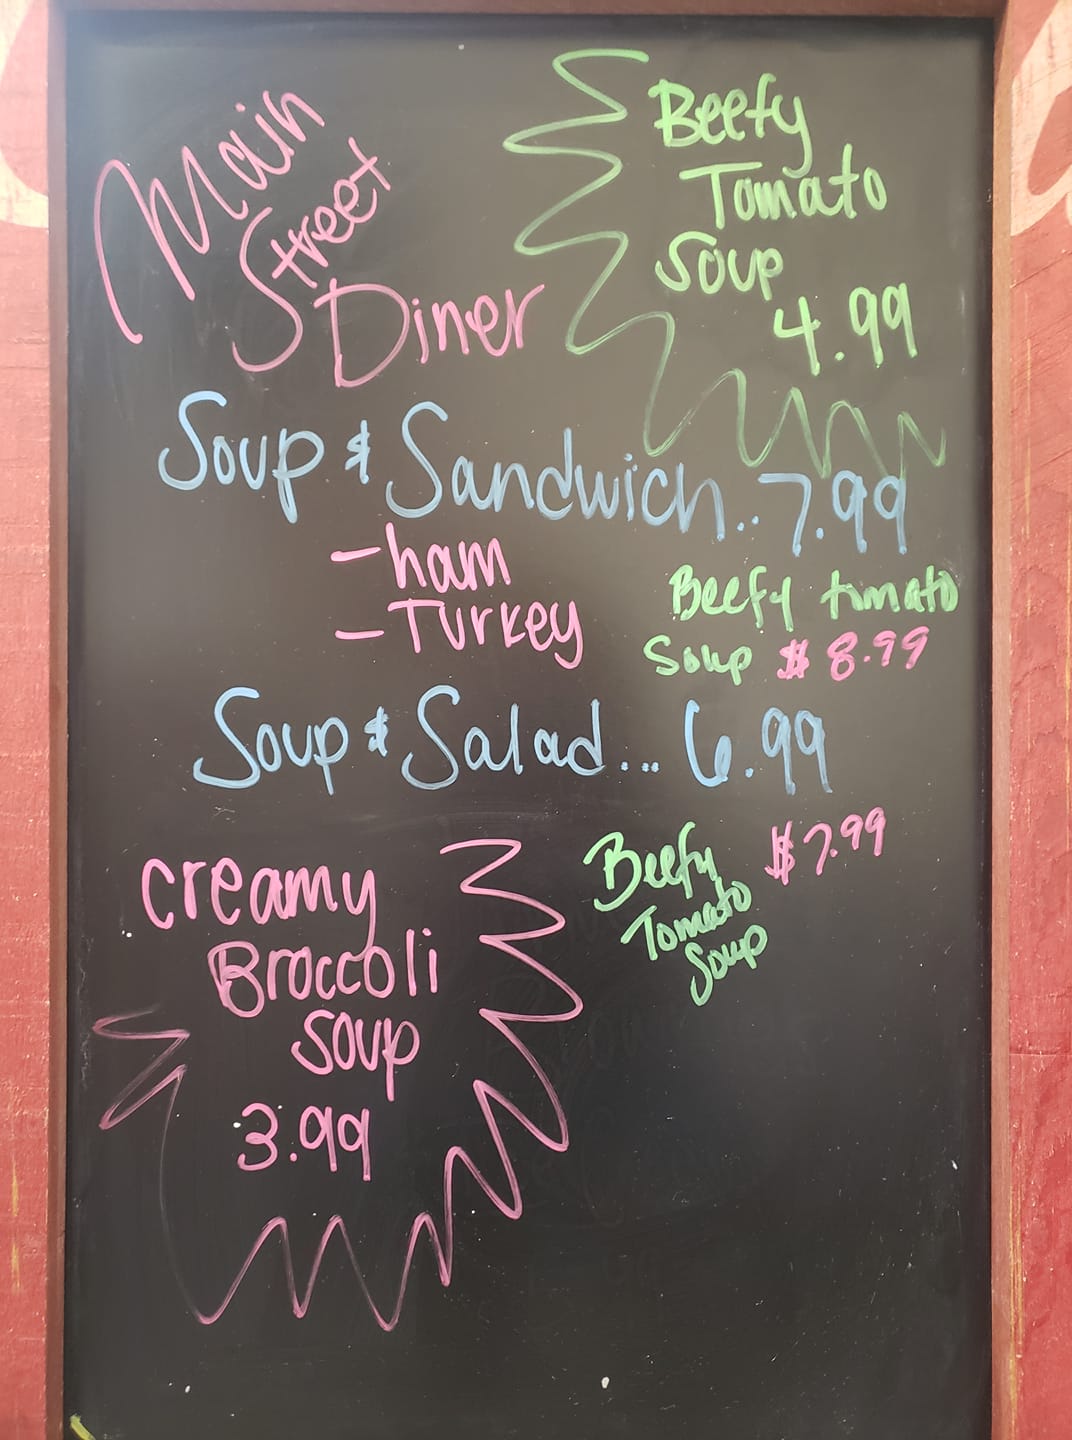 Main
Street
Diner
Beefy
Tomato
Soup
4.99
Soup & Sandwich..7.99
-ham
-Turkey
Beefy tomato
Soup $8.99
Soup & Salad...6.99
Beefy $7.99
Tomato
Soup
creamy
Broccoli
soup
3.99